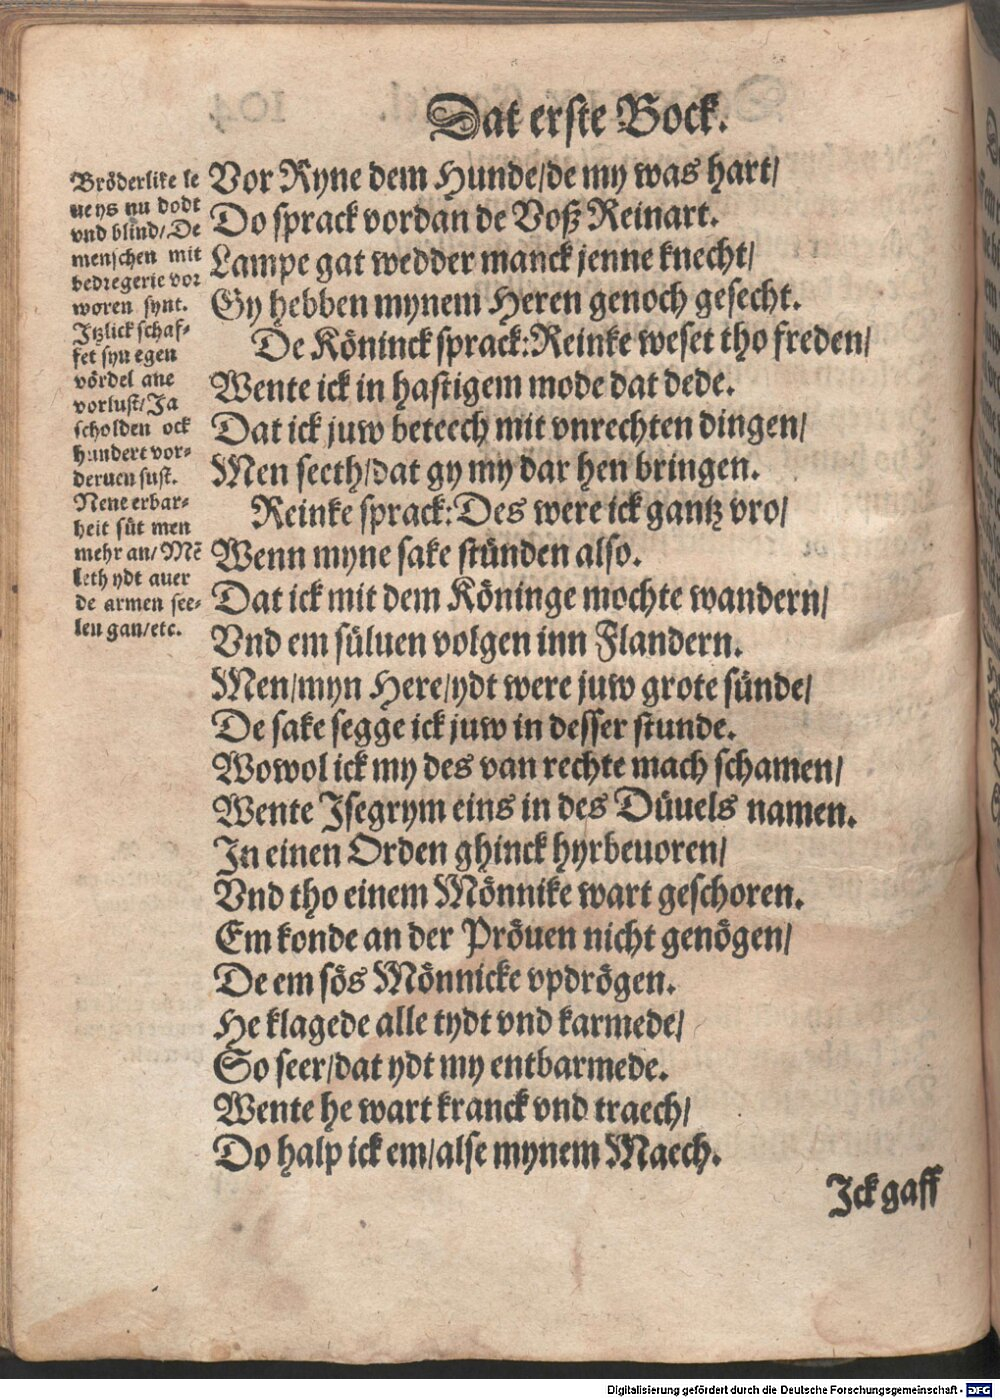 Dat erste Bock.
Bröderlike le
uen ys nu dodt
vnd blind/De
menschen mit
bedregerie vor
woren synt.
Jtzlick schaf-
fet syn egen
vördel ane
vorlust/Ja
scholden ock
hundert vor-
deruen sust.
Nene erbar-
heit süt men
mehr an/Mē
leth ydt auer
de armen see-
len gan/etc.
Vor Ryne dem Hunde/de my was hart/
Do sprack vordan de Voß Reinart.
Lampe gat wedder manck jenne knecht/
Gy hebben mynem Heren genoch gesecht.
De Köninck sprack:Reinke weset tho freden/
Wente ick in hastigem mode dat dede.
Dat ick juw beteech mit vnrechten dingen/
Men seeth/dat gy my dar hen bringen.
Reinke sprack:Des were ick gantz vro/
Wenn myne sake stünden also.
Dat ick mit dem Köninge mochte wandern/
Vnd em süluen volgen inn Flandern.
Men/myn Here/ydt were juw grote sünde/
De sake segge ick juw in desser stunde.
Wowol ick my des van rechte mach schamen/
Wente Jsegrym eins in des Düuels namen.
Jn einen Orden ghinck hyrbeuoren/
Vnd tho einem Mönnike wart geschoren.
Em konde an der Pröuen nicht genögen/
De em sös Mönnicke vpdrögen.
He klagede alle tydt vnd karmede/
So seer/dat ydt my entbarmede.
Wente he wart kranck vnd traech/
Do halp ick em/alse mynem Maech.
Jck gaff
Digitalisierung gefördert durch die Deutsche Forschungsgemeinschaft - DFG